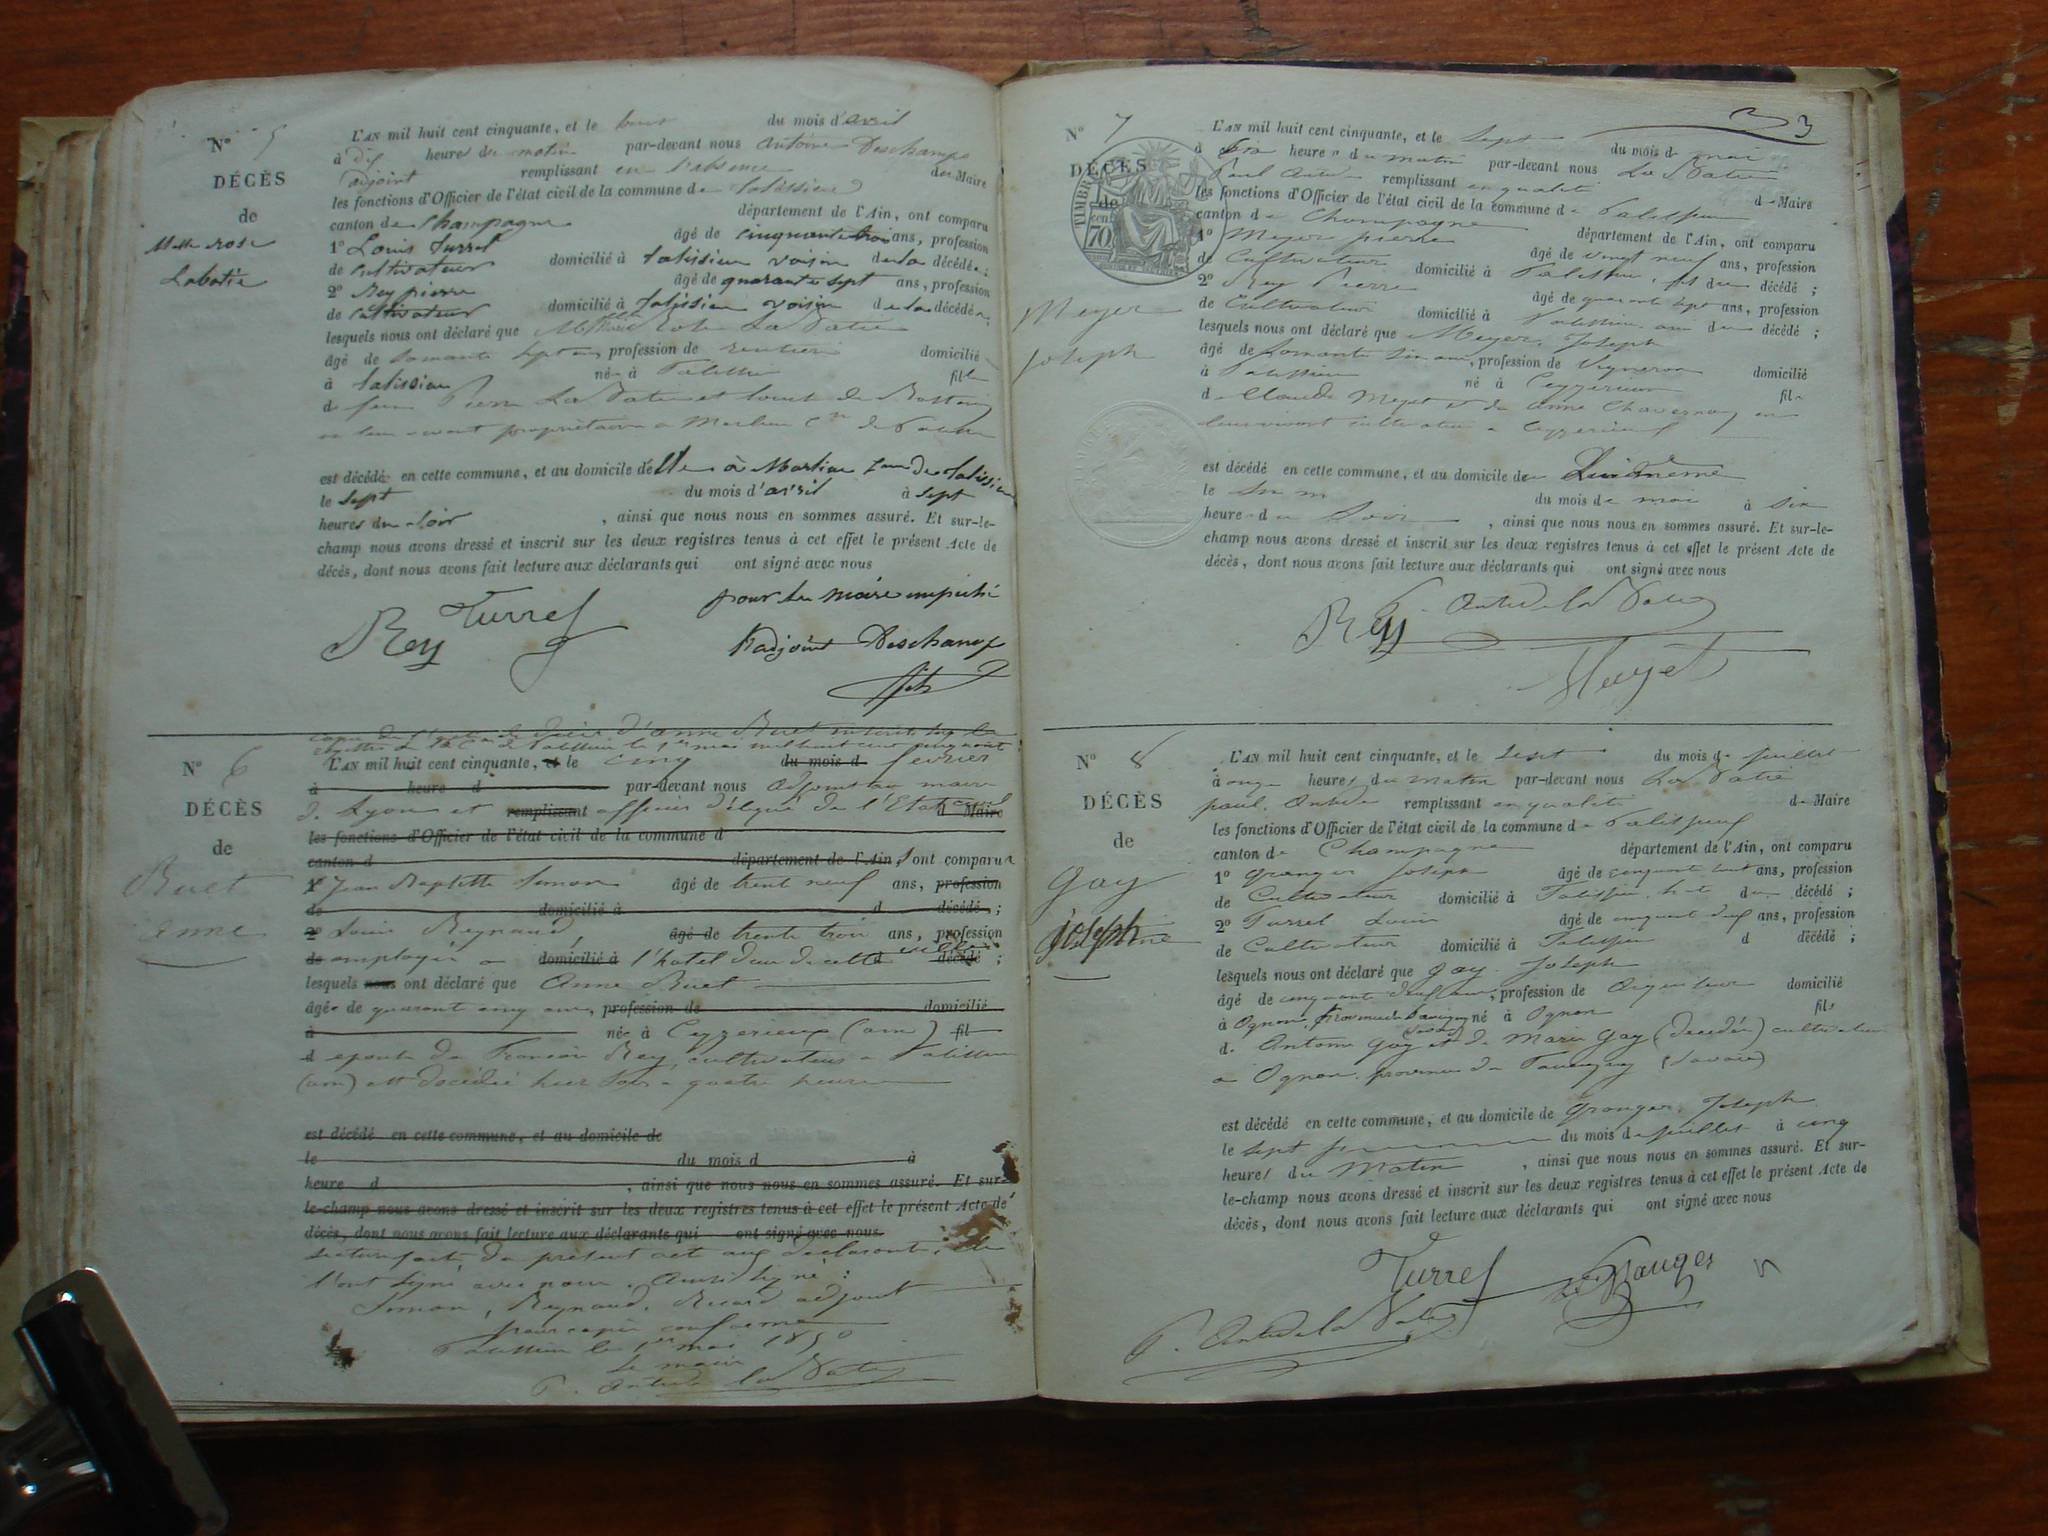 N° 5
DÉCÈS
de
Melle rose
Labatie
L'AN mil huit cent cinquante, et le huit du mois d'avril
à dix heures du matin par-devant nous antoine Deschamps
adjoint remplissant en l'absence du Maire
les fonctions d'Officier de l'état civil de la commune de talissieu
canton de Champagne département de l'Ain, ont comparu
1° Louis turrel âgé de cinquante trois ans, profession
de cultivateur domicilié à talissieu voisin de la décédée;
2° Rey pierre âgé de quarante sept ans, profession
de cultivateur domicilié à talissieu voisin de la décédée;
lesquels nous ont déclaré que Rose La Batie
âgé de sept ans profession de rentière domicilié
à talissieu née à Talissieu fille
de feu Pierre La Batie et
propriétaires à
est décédé en cette commune, et au domicile d'elle à de talissieu
le sept du mois d'avril à sept
heures du soir, ainsi que nous nous en sommes assuré. Et sur-le-
champ nous avons dressé et inscrit sur les deux registres tenus à cet effet le présent Acte de
décès, dont nous avons fait lecture aux déclarants qui ont signé avec nous
Rey Turrel pour le maire empêché
l'adjoint Deschamps
N° 6
DÉCÈS
de
Buet
Anne
copie de l'acte de décès d'anne Buet inscrit sur le
registre de la Cne de Talissieu le 1er mai mil huit cent cinquante
L'AN mil huit cent cinquante, et le cinq du mois d février
à heure d par-devant nous adjoint au maire
de Lyon et remplissant officier délégué de l'Etat civil d Maire
les fonctions d'Officier de l'état civil de la commune d
canton d département de l'Ain, ont comparu
1° Jean Baptiste Simon âgé de trent neuf ans, profession
de domicilié à d décédé;
2° Louis Reynaud, âgé de trente trois ans, profession
de employés à domicilié à l'hotel dieu de cette ville d décédé;
lesquels nous ont déclaré que Anne Buet
âgée de quarant cinq ans, profession de domicilié
à née à Ceyzerieux (ain) fil
d epouse de François Rey, cultivateur a Talissieu
(ain) est décédée hier soir a quatre heures
est décédé en cette commune, et au domicile de
le du mois d à
heure d, ainsi que nous nous en sommes assuré. Et sur-
le-champ nous avons dressé et inscrit sur les deux registres tenus à cet effet le présent Acte de
décès, dont nous avons fait lecture aux déclarants qui ont signé avec nous.
Lecture faite du présent act aux déclarants, ils
l'ont signé avec nous. Ainsi signé:
Simon, Reynaud, Ricard adjoint
pour copie conforme
Talissieu le 1er mai 1850
Le maire
P. Antide la Batie
3
N° 7
DÉCÈS
de
TIMBRE
70
Meyer
Joseph
L'AN mil huit cent cinquante, et le sept du mois de mai
à six heures du matin par-devant nous La Batie
Paul Antide remplissant en qualité de Maire
les fonctions d'Officier de l'état civil de la commune de Talissieu
canton de Champagne département de l'Ain, ont comparu
1° Meyer pierre âgé de vingt neuf ans, profession
de Cultivateur domicilié à Talissieu, fils du décédé;
2° Rey Pierre âgé de quarante sept ans, profession
de Cultivateur domicilié à Talissieu ami du décédé;
lesquels nous ont déclaré que Meyer, Joseph
âgé de soixante six ans, profession de Vigneron domicilié
à Talissieu né à Ceyzérieux fils
de Claude Meyer et de Anne en
leur vivant cultivateurs a Ceyzerieux
est décédé en cette commune, et au domicile de Lui même
le six du mois de mai à six
heures du Soir, ainsi que nous nous en sommes assuré. Et sur-le-
champ nous avons dressé et inscrit sur les deux registres tenus à cet effet le présent Acte de
décès, dont nous avons fait lecture aux déclarants qui ont signé avec nous
Rey Antide la Batie
Meyet
N° 8
DÉCÈS
de
Gay
joseph
L'AN mil huit cent cinquante, et le sept du mois de juillet
à onze heures du matin par-devant nous La Batie
paul. Antide remplissant en qualité de Maire
les fonctions d'Officier de l'état civil de la commune de Talissieu
canton de Champagne département de l'Ain, ont comparu
1° Granger Joseph âgé de cinquante huit ans, profession
de Cultivateur domicilié à Talissieu hote du décédé;
2° Turrel Louis âgé de cinquante deux ans, profession
de Cultivateur domicilié à Talissieu d décédé;
lesquels nous ont déclaré que Gay. Joseph
âgé de cinquante deux ans, profession de domicilié
à Ognon, né à Ognon fils
de Antoine Gay et de Marie Gay (décédés) cultivateurs
a Ognon. province du Faucigny (Savoie)
est décédé en cette commune, et au domicile de Granger. Joseph
le sept du mois de juillet à cinq
heures du Matin, ainsi que nous nous en sommes assuré. Et sur-
le-champ nous avons dressé et inscrit sur les deux registres tenus à cet effet le présent Acte de
décès, dont nous avons fait lecture aux déclarants qui ont signé avec nous
Turrel Granger
P. Antide la Batie